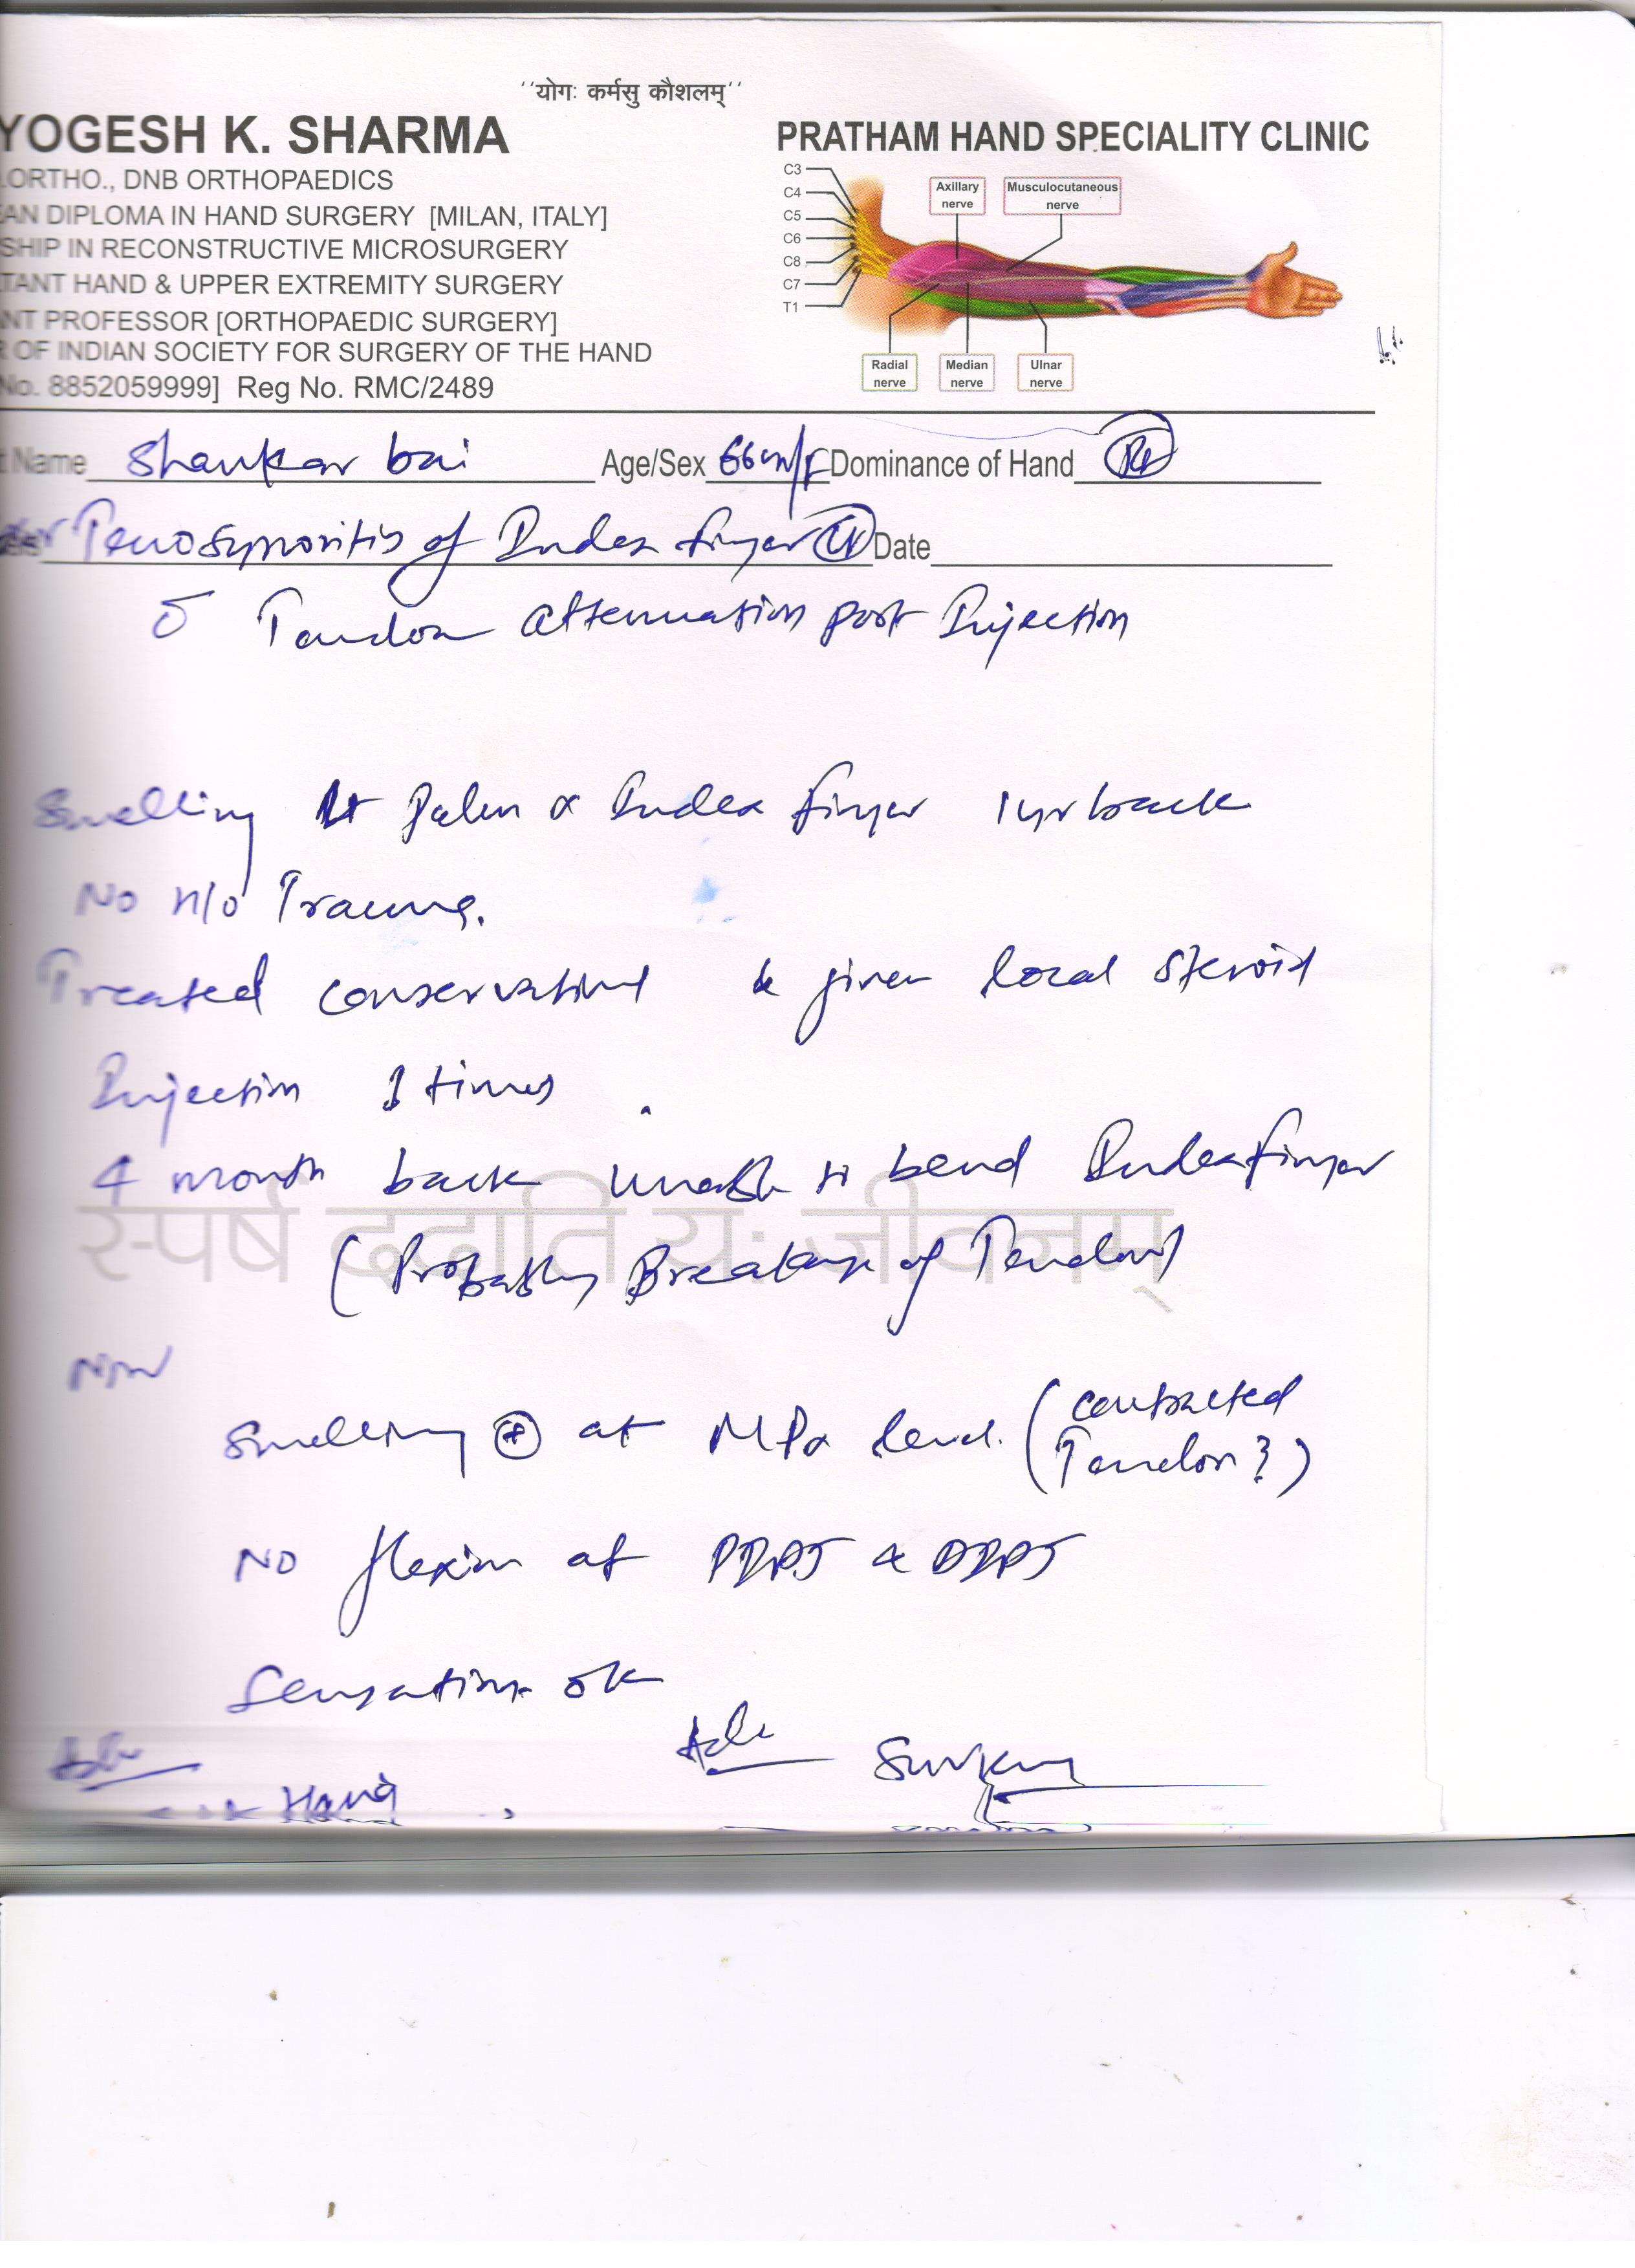 ''योगः कर्मसु कौशलम्''
YOGESH K. SHARMA
.ORTHO., DNB ORTHOPAEDICS
AN DIPLOMA IN HAND SURGERY [MILAN, ITALY]
SHIP IN RECONSTRUCTIVE MICROSURGERY
TANT HAND & UPPER EXTREMITY SURGERY
NT PROFESSOR [ORTHOPAEDIC SURGERY]
OF INDIAN SOCIETY FOR SURGERY OF THE HAND
No. 8852059999] Reg No. RMC/2489
PRATHAM HAND SPECIALITY CLINIC
C3
C4
C5
C6
C8
C7
T1
Axillary nerve
Musculocutaneous nerve
Radial nerve
Median nerve
Ulnar nerve
Name Shankar bai Age/Sex /F Dominance of Hand Rt
Tenosynovitis of Index finger Date
Tendon attenuation post Injection
Swelling Lt Palm & Index finger 1yr back
No H/o Trauma.
Treated & given local steroid
Injection times
4 month back unable to bend Index finger
(Probably Breakage of Tendon)
स्पर्ष ददाति यः जीवनम्
Now
Swelling + at MPx level. (contracted Tendon?)
NO flexion at PIPJ & DIPJ
Sensation ok
Adv
Hand
Adv Surgery